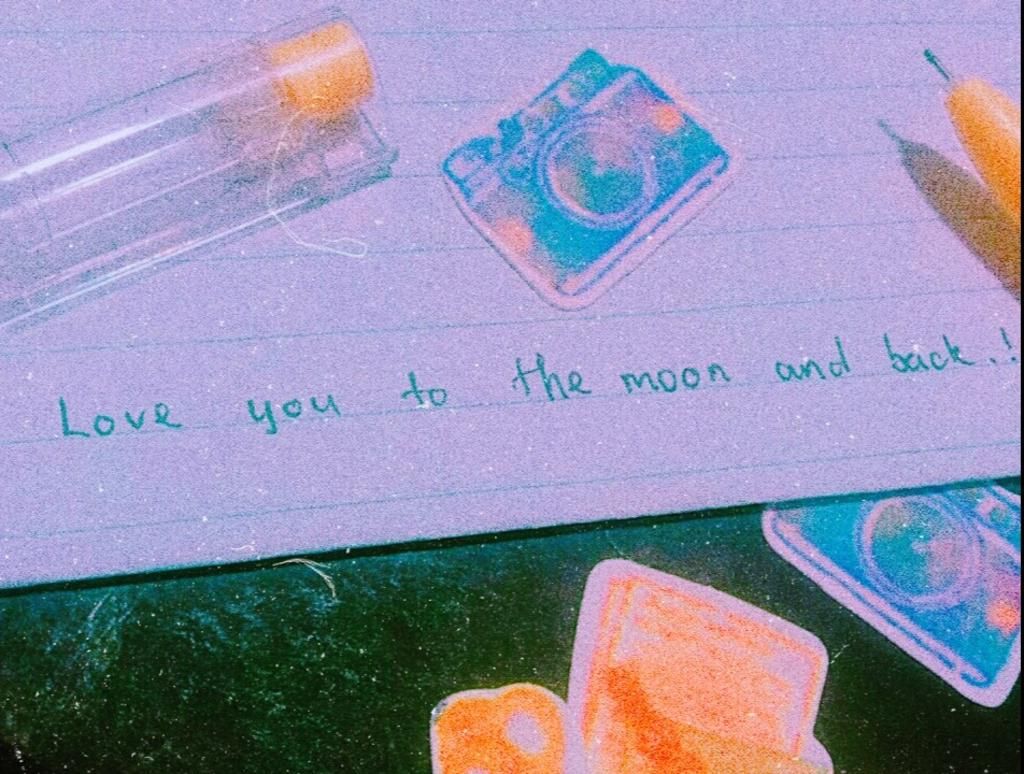 Love you to the moon and back.!